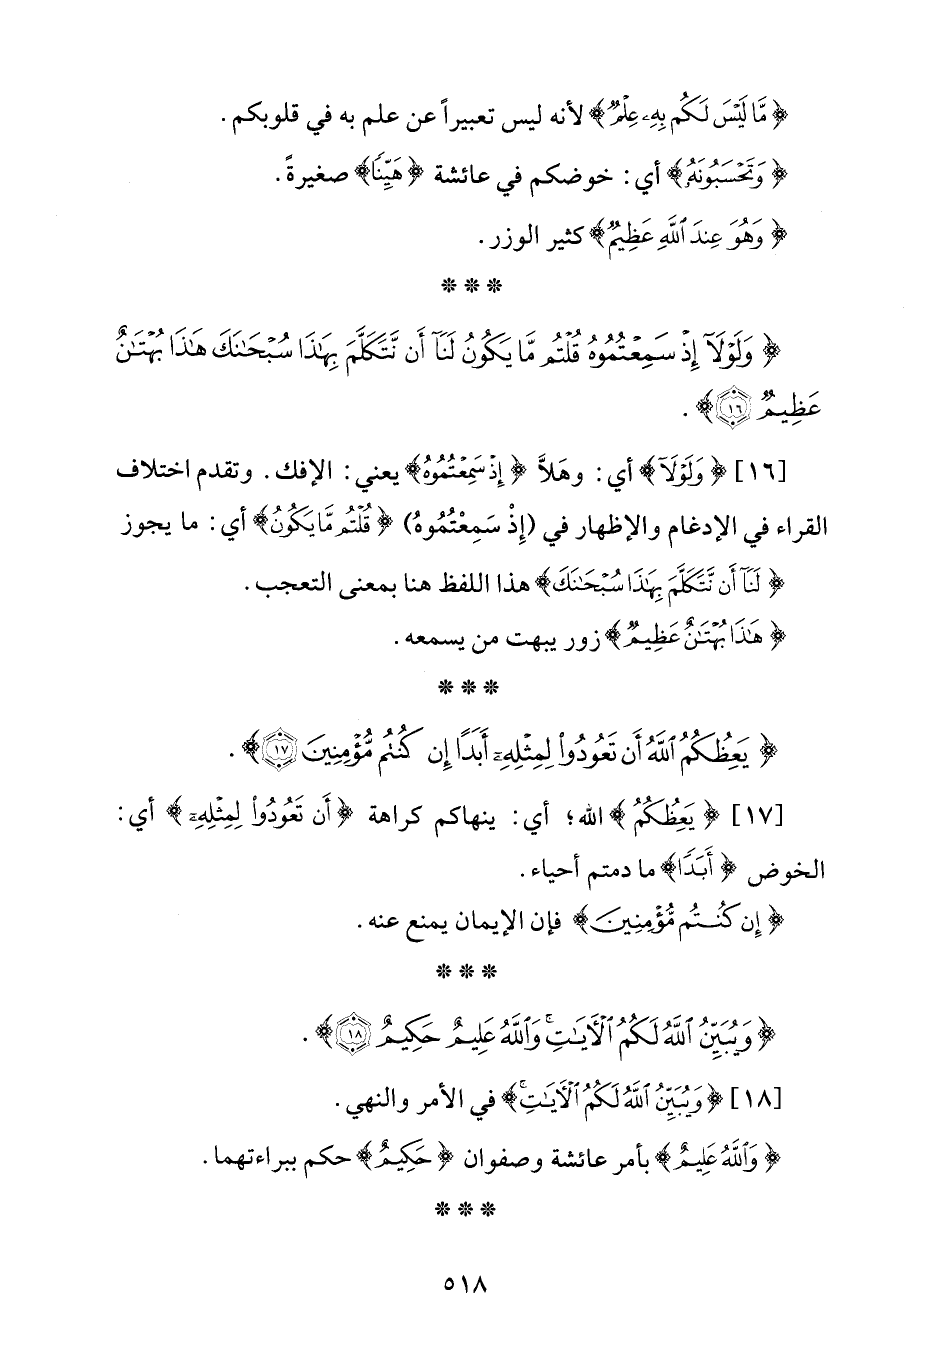 ﴿مَّا لَيْسَ لَكُم بِهِۦ عِلْمٌ﴾ لأنه ليس تعبيراً عن علم به في قلوبكم .
﴿وَتَحْسَبُونَهُۥ﴾ أي: خوضكم في عائشة ﴿هَيِّنًا﴾ صغيرةً.
﴿وَهُوَ عِندَ ٱللَّهِ عَظِيمٌ﴾ كثير الوزر.
* * *
﴿وَلَوْلَآ إِذْ سَمِعْتُمُوهُ قُلْتُم مَّا يَكُونُ لَنَآ أَن نَّتَكَلَّمَ بِهَٰذَا سُبْحَٰنَكَ هَٰذَا بُهْتَٰنٌ
عَظِيمٌ ١٦﴾ .
[١٦] ﴿وَلَوْلَآ﴾ أي: وهَلاَّ ﴿إِذْ سَمِعْتُمُوهُ﴾ يعني: الإفك. وتقدم اختلاف
القراء في الإدغام والإظهار في (إِذْ سَمِعْتُمُوهُ) ﴿قُلْتُم مَّا يَكُونُ﴾ أي: ما يجوز
﴿لَنَآ أَن نَّتَكَلَّمَ بِهَٰذَا سُبْحَٰنَكَ﴾ هذا اللفظ هنا بمعنى التعجب.
﴿هَٰذَا بُهْتَٰنٌ عَظِيمٌ﴾ زور يبهت من يسمعه.
* * *
﴿يَعِظُكُمُ ٱللَّهُ أَن تَعُودُوا۟ لِمِثْلِهِۦٓ أَبَدًا إِن كُنتُم مُّؤْمِنِينَ ١٧﴾ .
[١٧] ﴿يَعِظُكُمُ﴾ الله؛ أي: ينهاكم كراهة ﴿أَن تَعُودُوا۟ لِمِثْلِهِۦٓ﴾ أي:
الخوض ﴿أَبَدًا﴾ ما دمتم أحياء.
﴿إِن كُنتُم مُّؤْمِنِينَ﴾ فإن الإيمان يمنع عنه.
* * *
﴿وَيُبَيِّنُ ٱللَّهُ لَكُمُ ٱلْأَيَٰتِ ۚ وَٱللَّهُ عَلِيمٌ حَكِيمٌ ١٨﴾ .
[١٨] ﴿وَيُبَيِّنُ ٱللَّهُ لَكُمُ ٱلْأَيَٰتِ ۚ﴾ في الأمر والنهي.
﴿وَٱللَّهُ عَلِيمٌ﴾ بأمر عائشة وصفوان ﴿حَكِيمٌ﴾ حكم ببراءتهما.
* * *
٥١٨